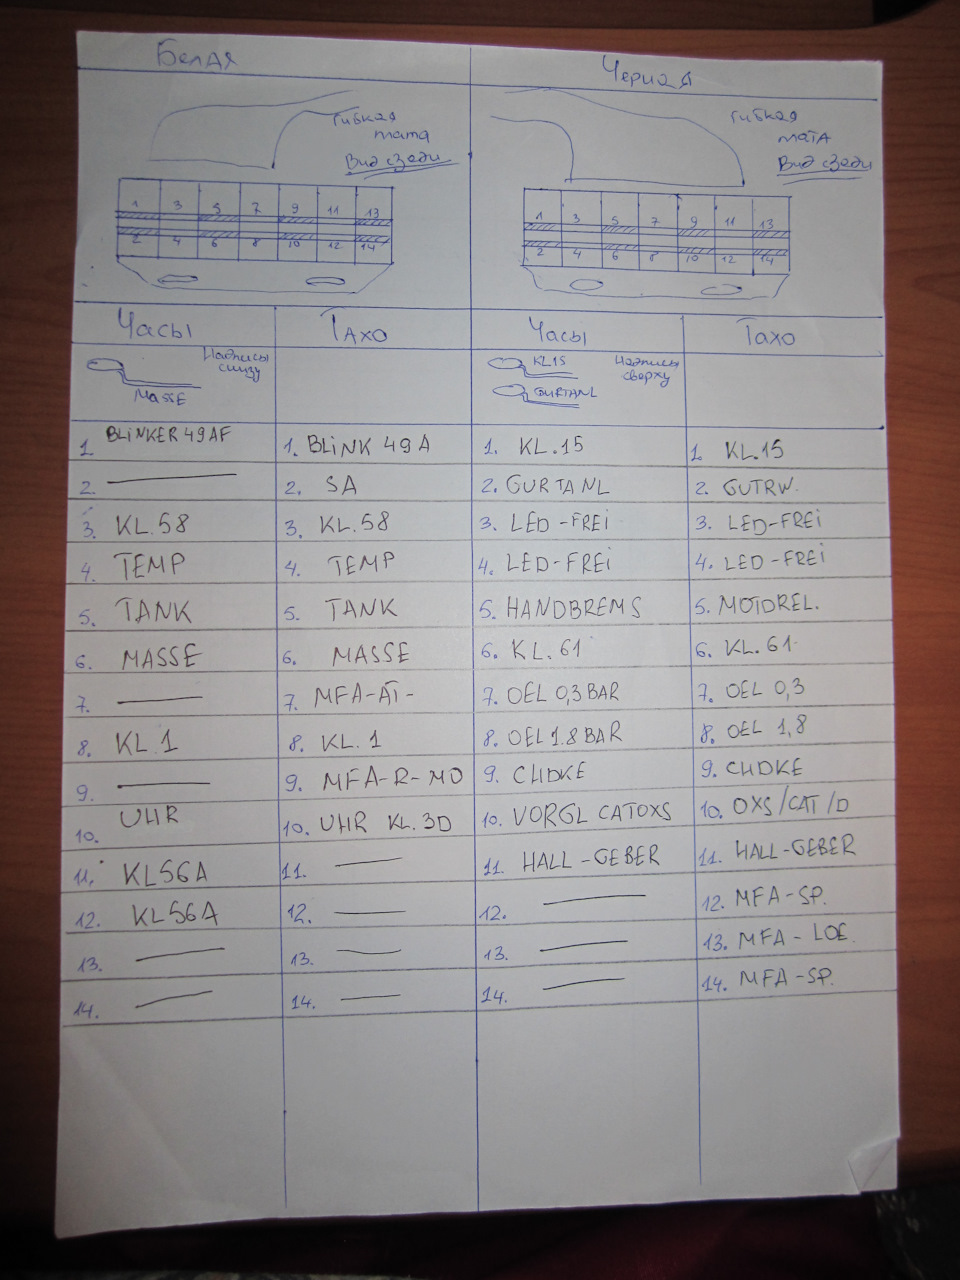 Белая
Черная
Гибкая
плата
Вид сзади
Гибкая
плата
Вид сзади
1 3 5 7 9 11 13
2 4 6 8 10 12 14
1 3 5 7 9 11 13
2 4 6 8 10 12 14
Часы
Тахо
Часы
Тахо
Надписи
снизу
MASSE
KL15
GURTANL
Надписи
сверху
1. BLINKER 49AF
2.
3. KL.58
4. TEMP
5. TANK
6. MASSE
7.
8. KL.1
9.
10. UHR
11. KL56A
12. KL56A
13.
14.
1. BLINK 49A
2. SA
3. KL.58
4. TEMP
5. TANK
6. MASSE
7. MFA-AT-
8. KL. 1
9. MFA-R-MO
10. UHR KL.30
11.
12.
13.
14.
1. KL.15
2. GURTANL
3. LED-FREI
4. LED-FREI
5. HANDBREMS
6. KL.61
7. OEL 0,3 BAR
8. OEL 1.8 BAR
9. CHOKE
10. VORGL CATOXS
11. HALL-GEBER
12.
13.
14.
1. KL.15
2. GUTRW.
3. LED-FREI
4. LED-FREI
5. MOTOREL.
6. KL.61
7. OEL 0,3
8. OEL 1,8
9. CHOKE
10. OXS/CAT/D
11. HALL-GEBER
12. MFA-SP.
13. MFA-LOE.
14. MFA-SP.